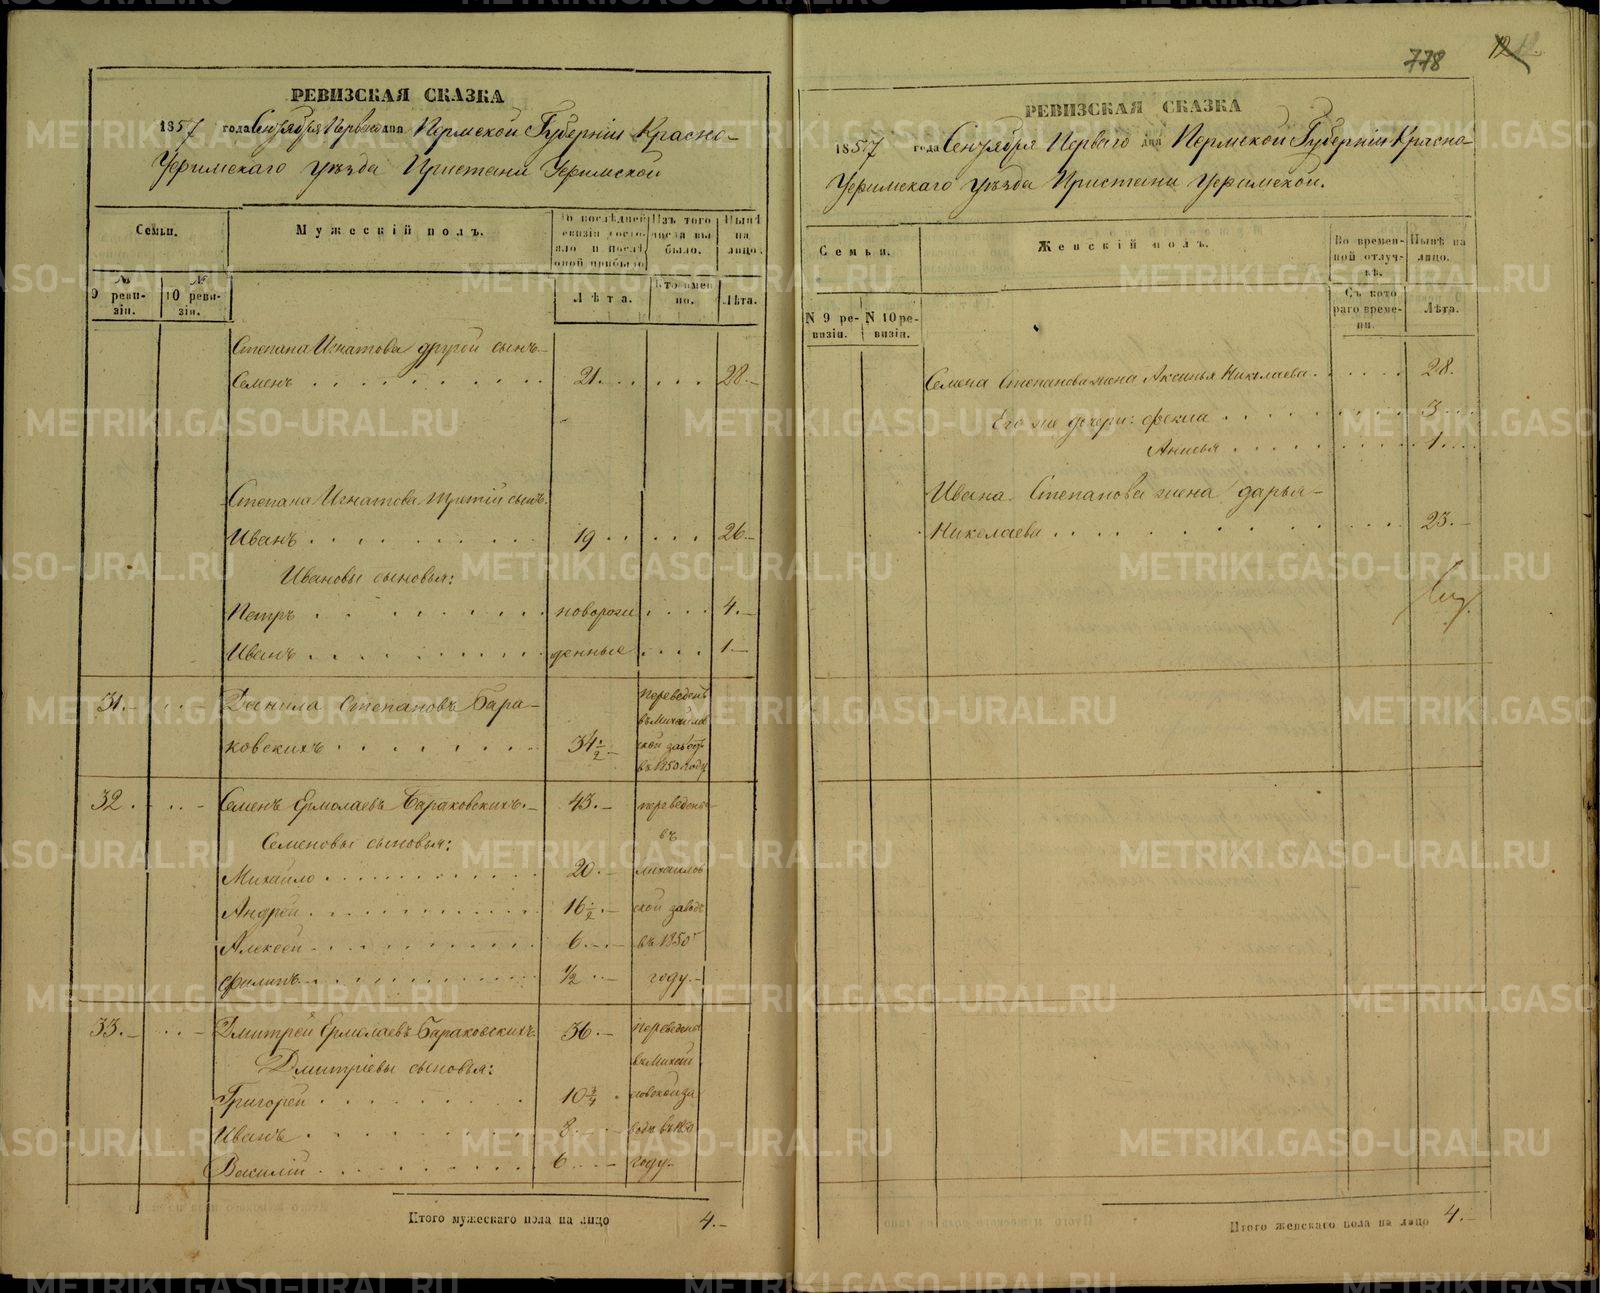 РЕВИЗСКАЯ СКАЗКА
1857 года Сентября Перваго дня Пермской Губерніи Красно-
Уфимскаго уѣзда Пристани Уфимской
Семьи.
Мужескій полъ.
По послѣдней ревизіи состояло и послѣ оной прибыло
Изъ того числа выбыло.
Нынѣ на лицо.
№ 9 ревизіи.
№ 10 ревизіи.
Лѣта.
Кто именно.
Лѣта.
Степана Игнатова другой сынъ
Семенъ 21. 28.
Степана Игнатова третій сынъ
Иванъ 19 26
Ивановы сыновья:
Петръ новорож 4.
Иванъ денные 1
31. Данила Степановъ Бара- переведенъ
въ Михайлов
ковскихъ 34 1/2 ской заводъ
въ 1850 году
32. Семенъ Ермолаевъ Бараковскихъ 43. переведены
Семеновы сыновья: въ
Михайло 20. михайлов
Андрей 16 1/2 ской заводъ
Алексей 6 въ 1850
Филипъ 1/2 году
33. Дмитрей Ермолаевъ Бараковскихъ 36 переведены
Дмитріевы сыновья: въ Михай
Григорей 10 3/4 ловской за
Иванъ 8 водъ въ 1850
Василій 6 году
Итого мужескаго пола на лицо 4.
778
12
РЕВИЗСКАЯ СКАЗКА
1857 года Сентября Перваго дня Пермской Губерніи Красно-
Уфимскаго уѣзда Пристани Уфимской.
Семьи.
Женскій полъ.
Во временной отлучкѣ.
Нынѣ на лицо.
N 9 ревизіи.
N 10 ревизіи.
Съ котораго времени.
Лѣта.
Семена Степанова жена Аксинья Николаева 28.
Его же дочери: Фекла 3
Анисья 1
Ивана Степанова жена Дарья
Николаева 23.
Итого женскаго пола на лицо 4.
METRIKI.GASO-URAL.RU